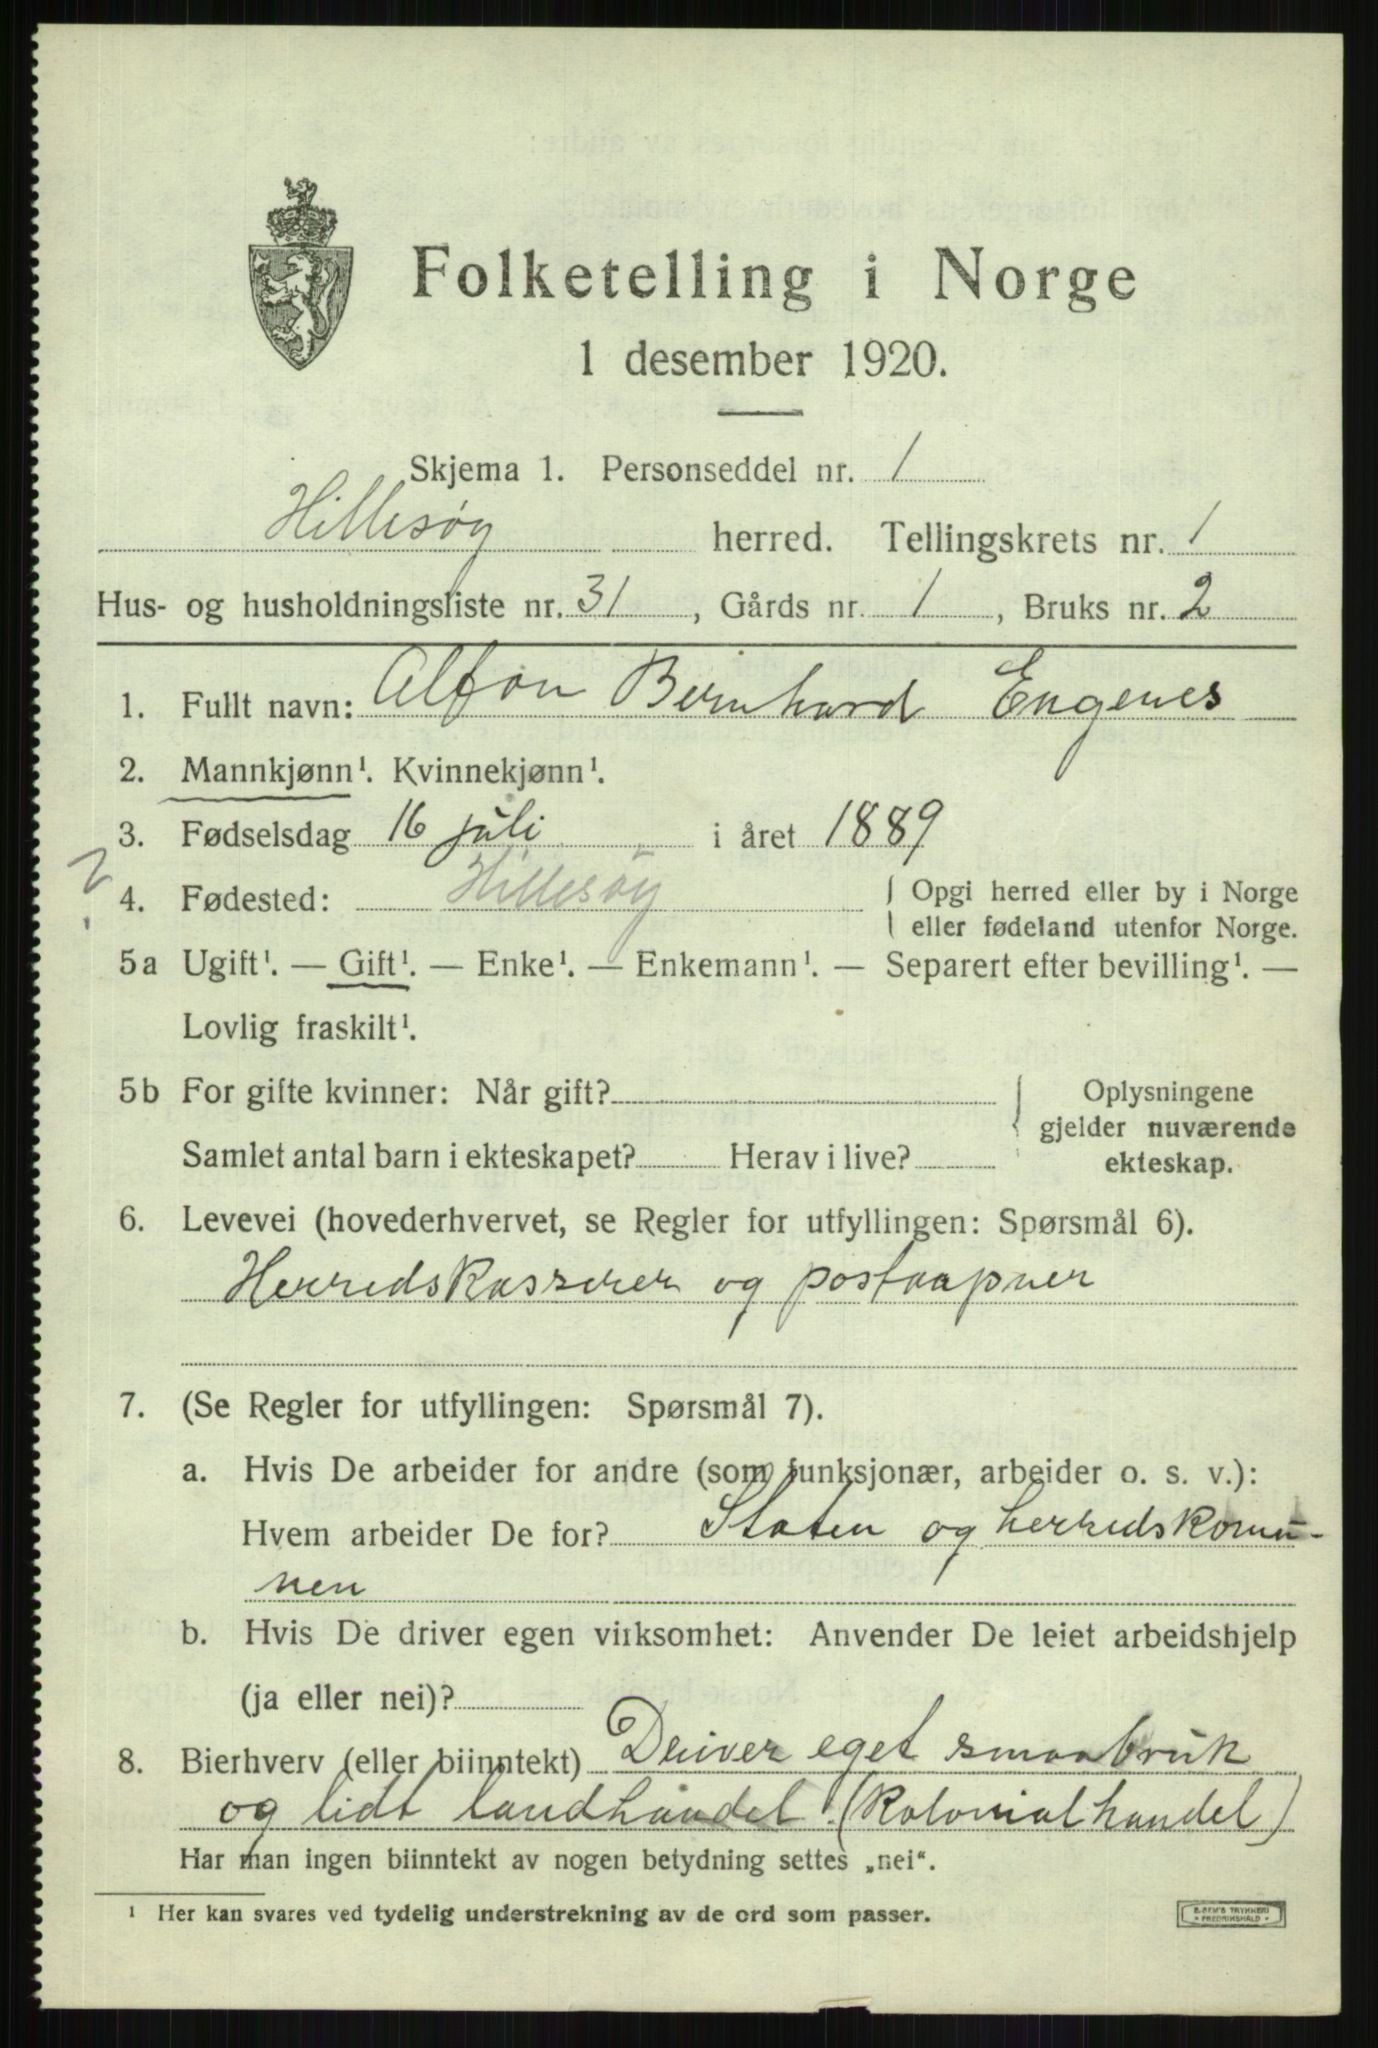 Folketelling i Norge
1 desember 1920.
Skjema 1. Personseddel nr. 1
Hillesøy herred. Tellingskrets nr. 1
Hus- og husholdningsliste nr. 31, Gårds nr. 1, Bruks nr. 2
1. Fullt navn: Alfon Bernhard Engenes
2. Mannkjønn¹. Kvinnekjønn¹.
3. Fødselsdag 16 juli i året 1889
?
4. Fødested: Hillesøy { Opgi herred eller by i Norge
eller fødeland utenfor Norge.
5a Ugift¹. — Gift¹. — Enke¹. — Enkemann¹. — Separert efter bevilling¹. —
Lovlig fraskilt¹.
5b For gifte kvinner: Når gift? { Oplysningene
gjelder nuværende
Samlet antal barn i ekteskapet? Herav i live? ekteskap.
6. Levevei (hovederhvervet, se Regler for utfyllingen: Spørsmål 6).
Herredskasserer og postaapner
7. (Se Regler for utfyllingen: Spørsmål 7).
a. Hvis De arbeider for andre (som funksjonær, arbeider o. s. v.):
Hvem arbeider De for? Staten og herredskomu-
nen
b. Hvis De driver egen virksomhet: Anvender De leiet arbeidshjelp
(ja eller nei)?
8. Bierhverv (eller biinntekt) Driver eget smaabruk
og lidt landhandel (Kolonialhandel)
Har man ingen biinntekt av nogen betydning settes „nei".
¹ Her kan svares ved tydelig understrekning av de ord som passer.
TRYKKERI
FREDRIKSHALD